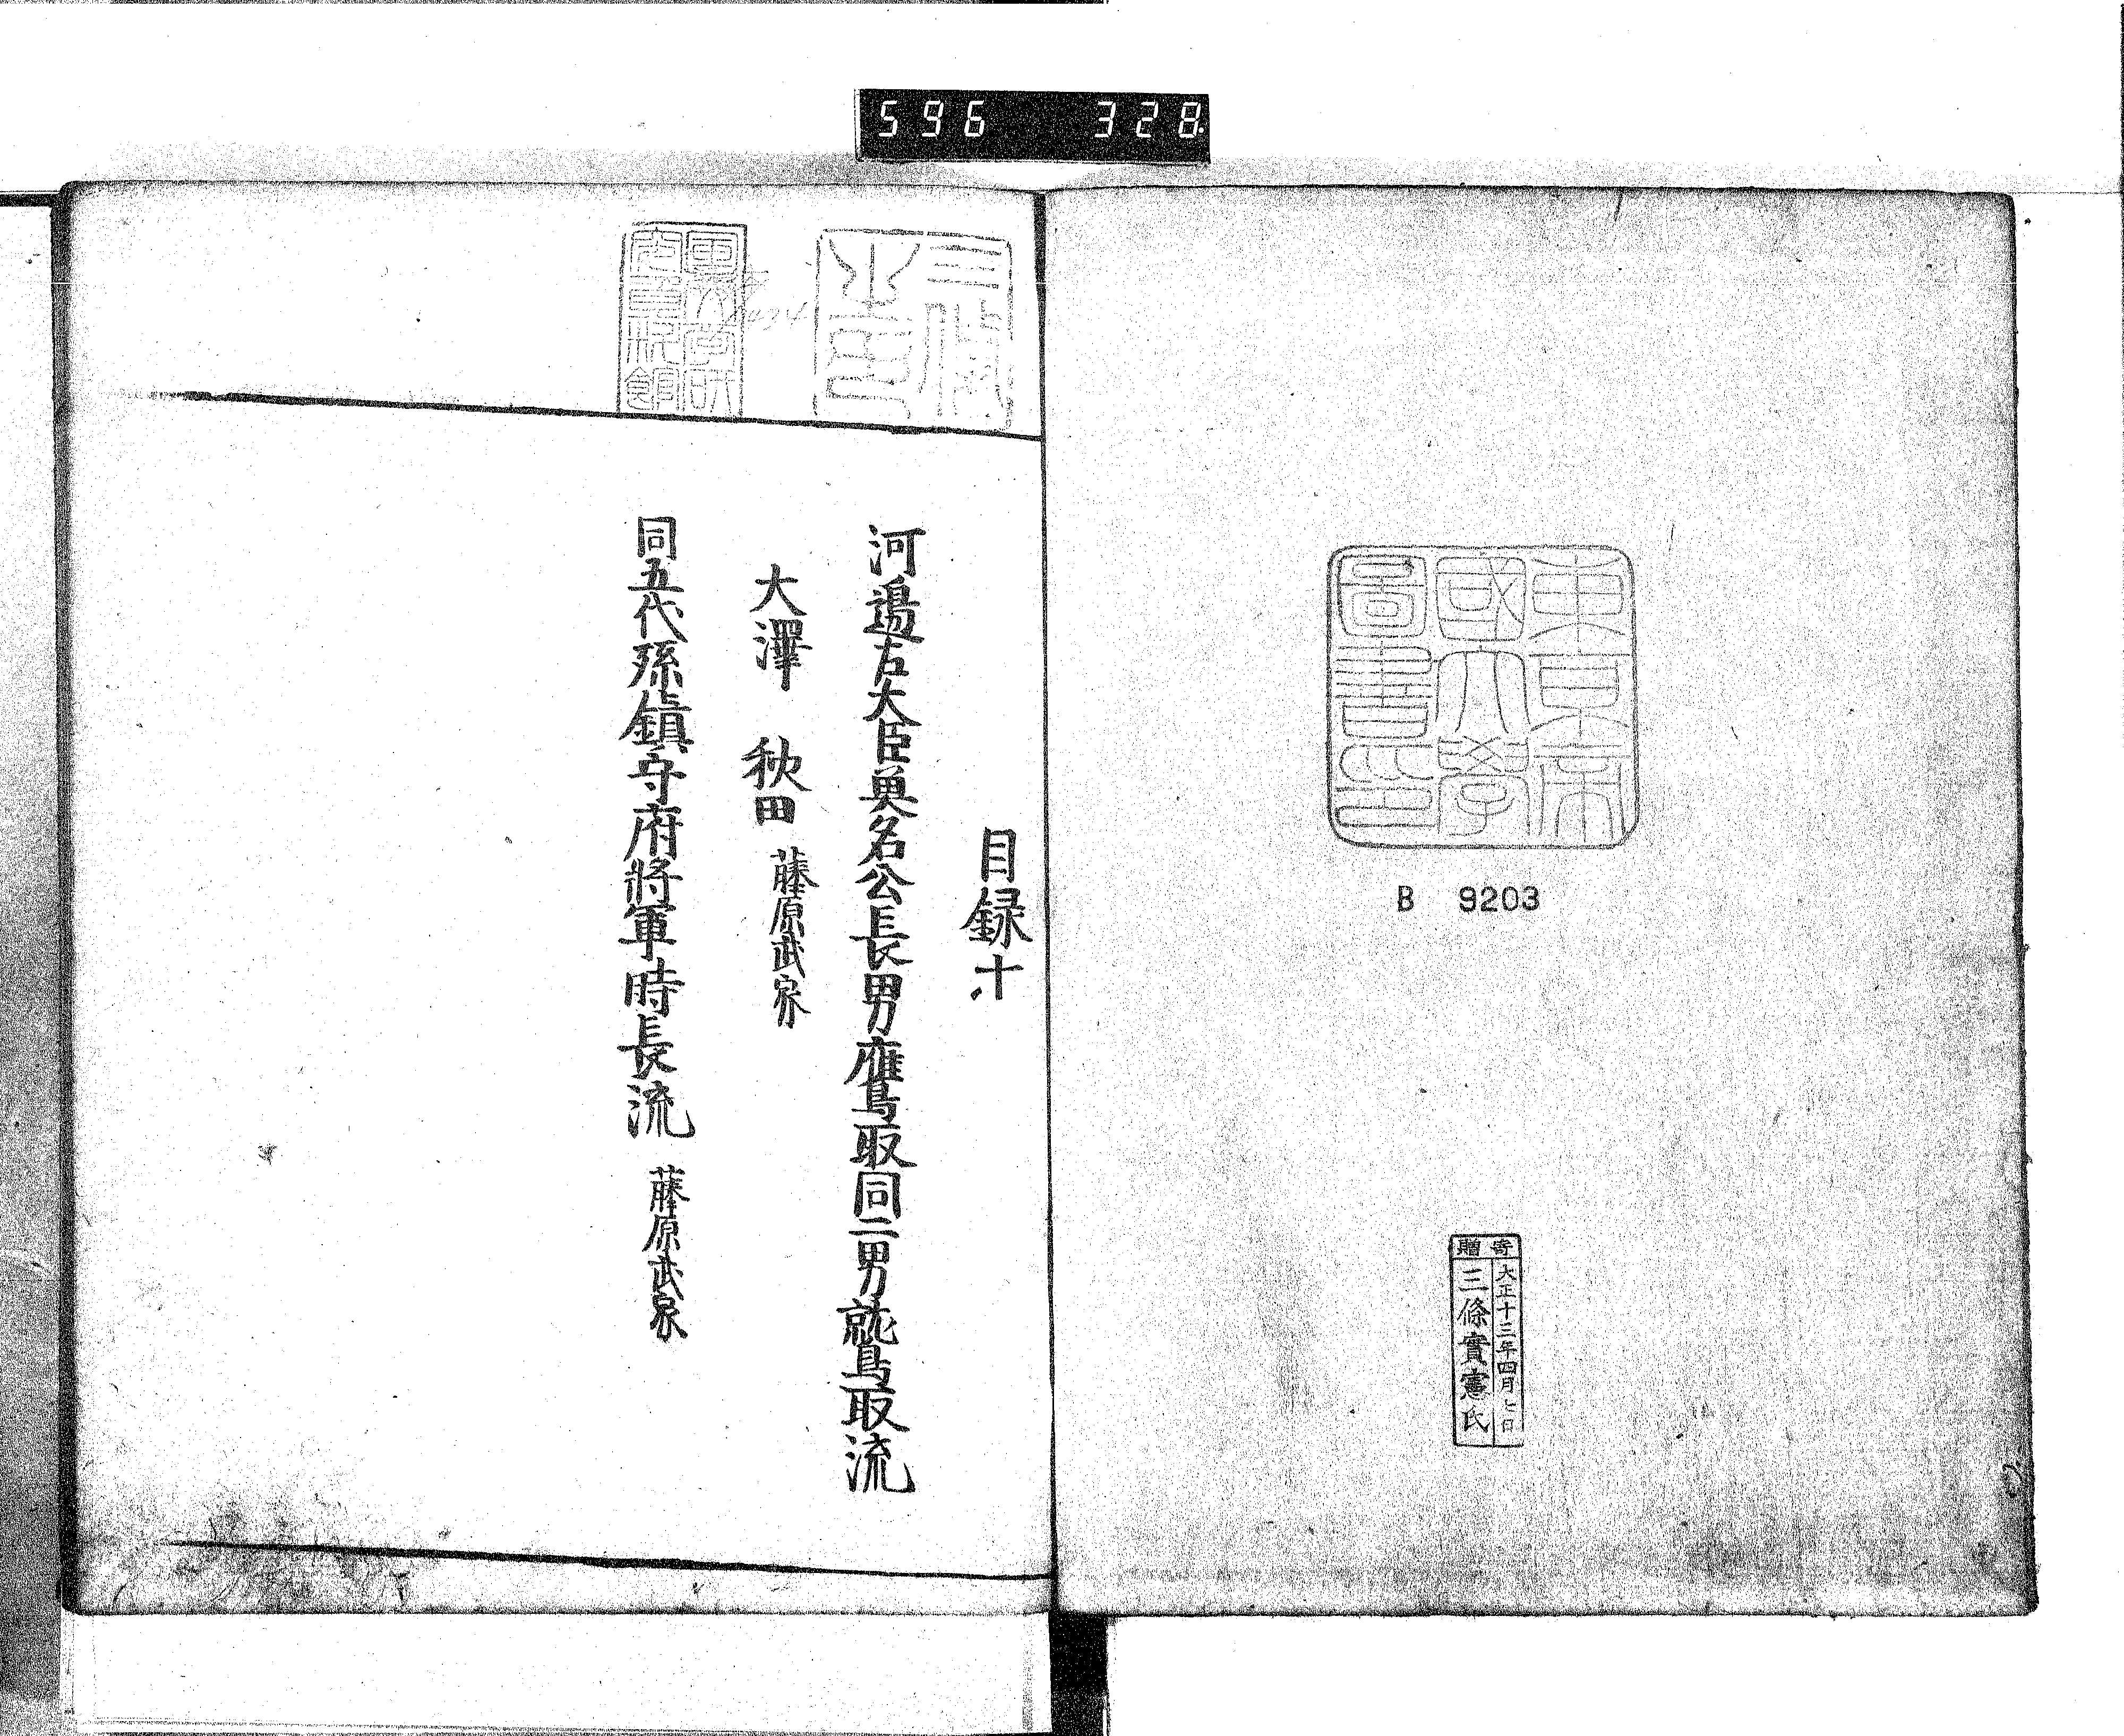 596 328.
東京帝
國大學
圖書印
B 9203
寄贈
大正十三年四月七日
三條實憲氏
三條
目録十
河邉左大臣魚名公長男鷹取同二男就鳥取流
大澤 秋田 藤原武家
同五代孫鎮守府將軍時長流 藤原武家